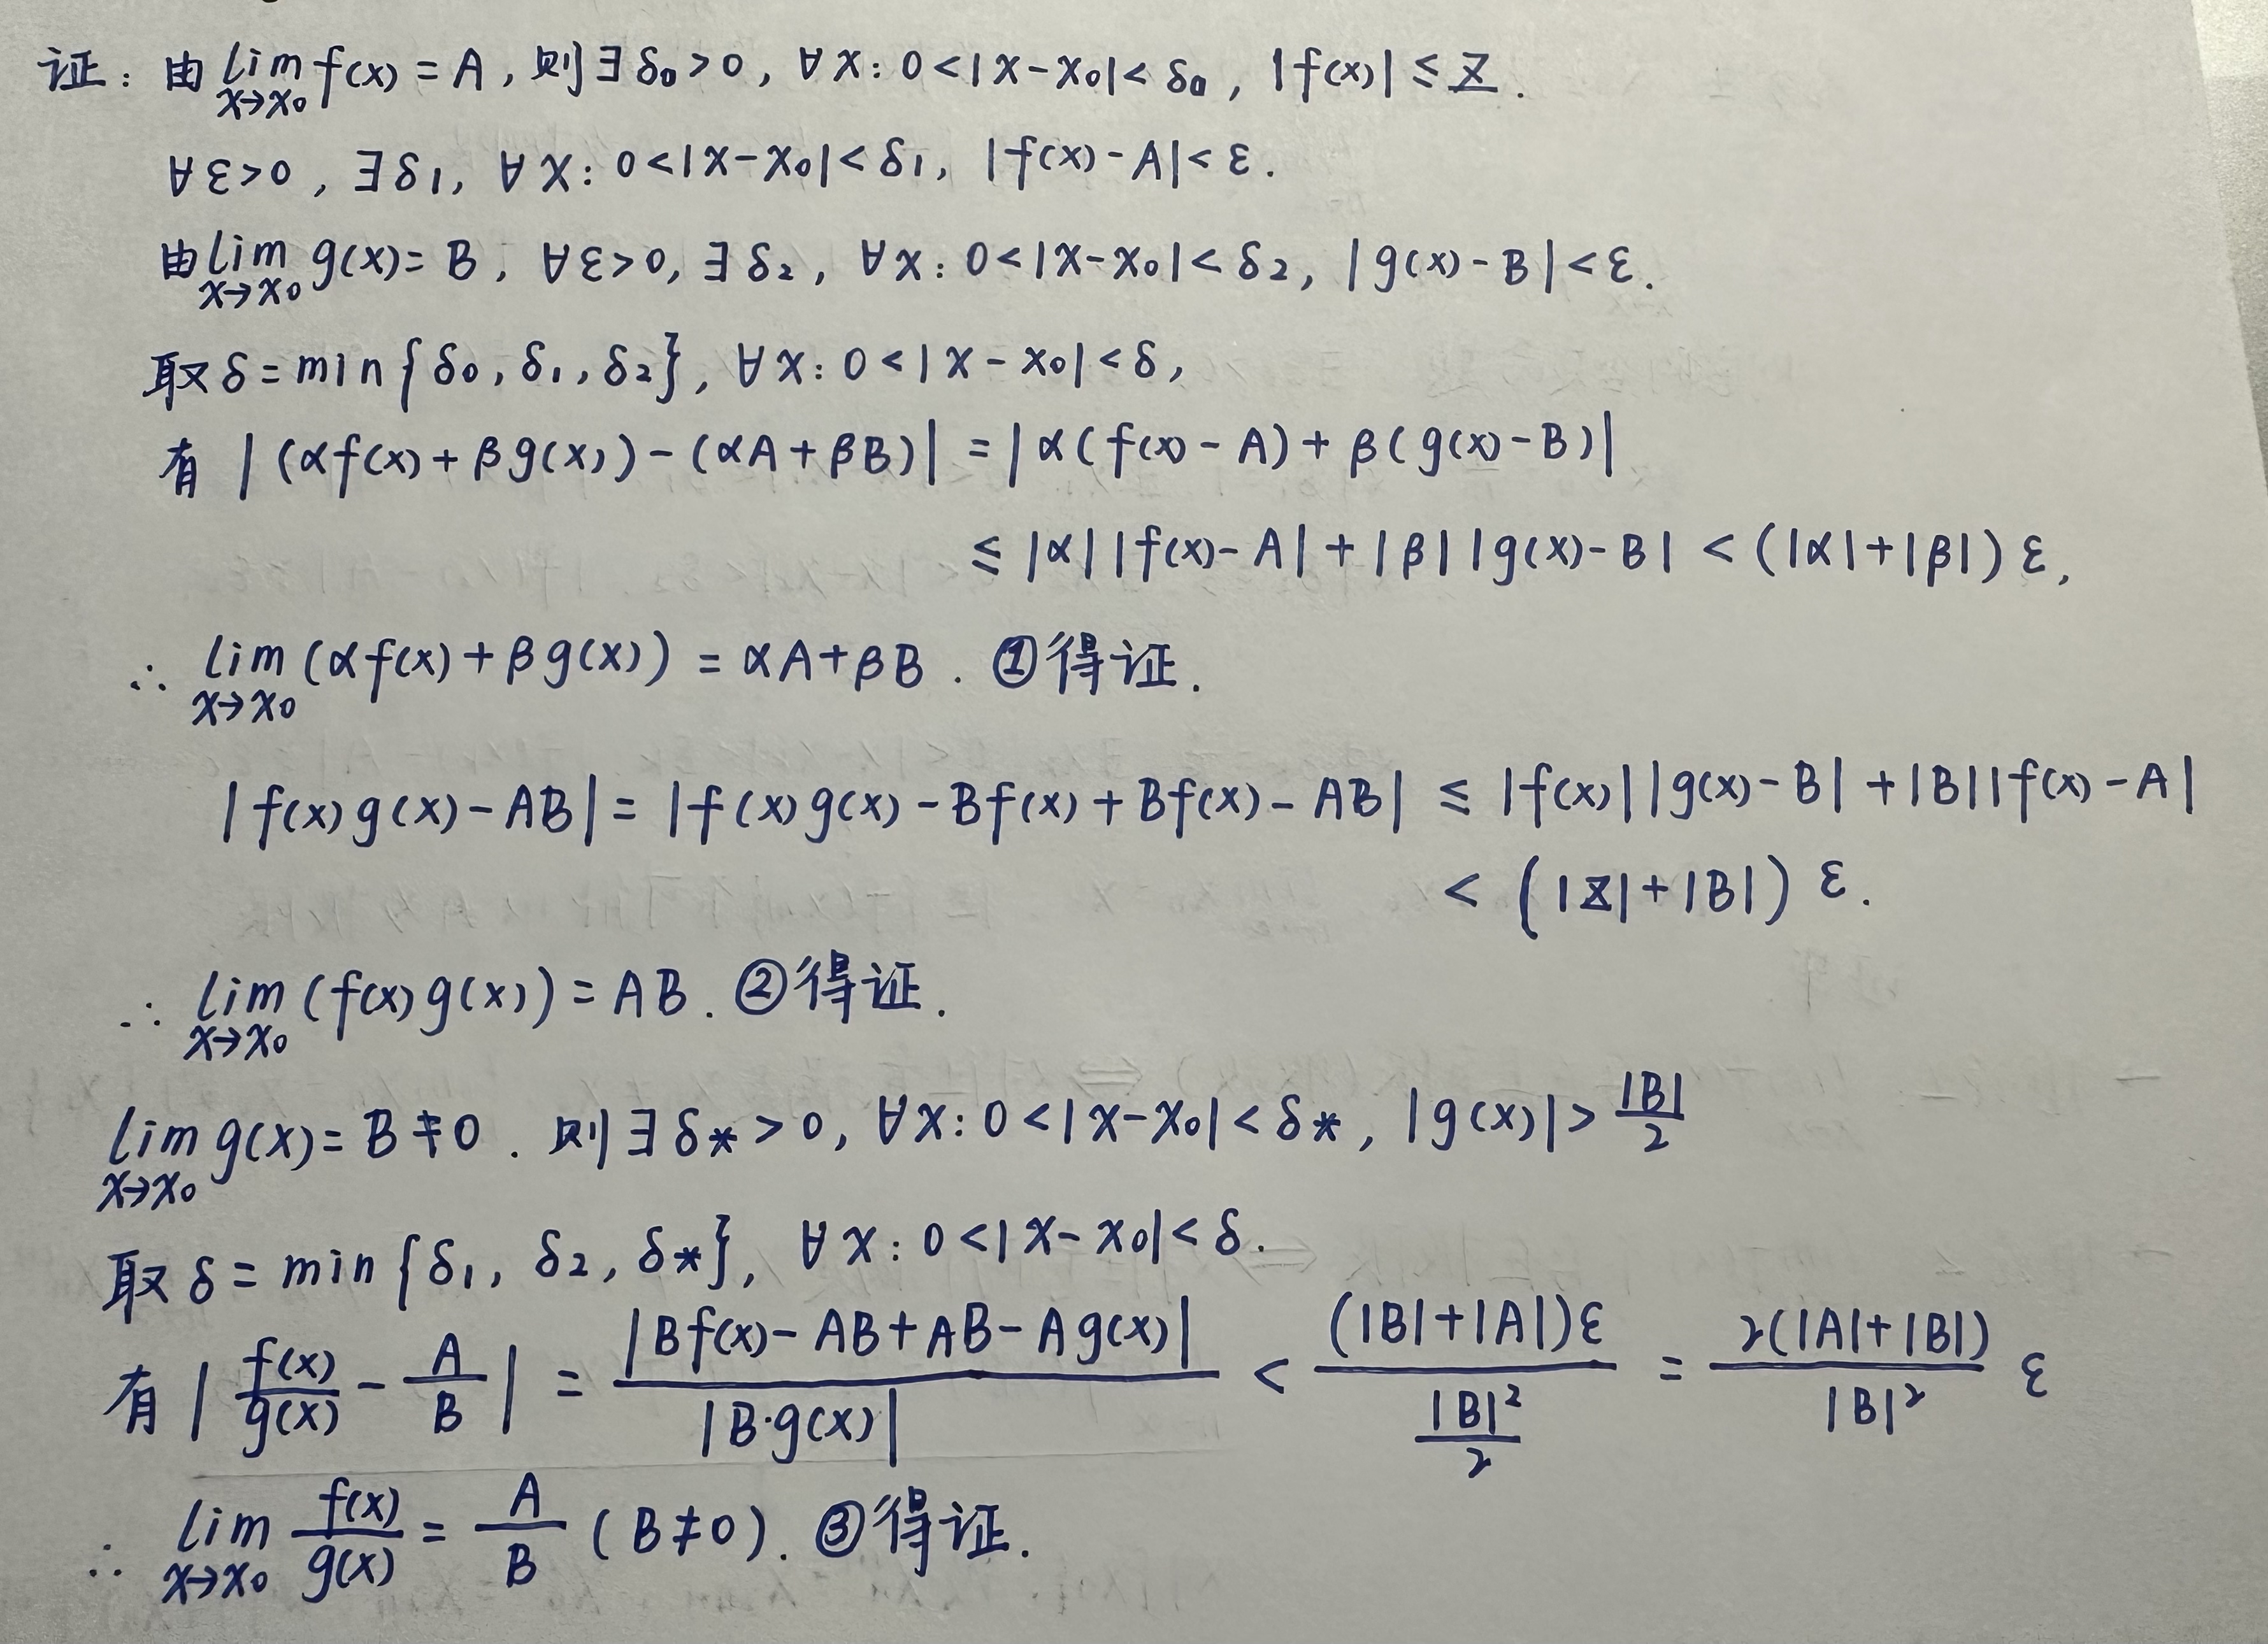 证：由 lim_{x→x₀} f(x) = A，则 ∃ δ₀ > 0，∀ x：0 < |x - x₀| < δ₀，|f(x)| ≤ Z．
∀ ε > 0，∃ δ₁，∀ x：0 < |x - x₀| < δ₁，|f(x) - A| < ε．
由 lim_{x→x₀} g(x) = B，∀ ε > 0，∃ δ₂，∀ x：0 < |x - x₀| < δ₂，|g(x) - B| < ε．
取 δ = min{δ₀, δ₁, δ₂}，∀ x：0 < |x - x₀| < δ，
有 |(αf(x) + βg(x)) - (αA + βB)| = |α(f(x) - A) + β(g(x) - B)|
≤ |α||f(x) - A| + |β||g(x) - B| < (|α| + |β|) ε，
∴ lim_{x→x₀} (αf(x) + βg(x)) = αA + βB．①得证．
|f(x)g(x) - AB| = |f(x)g(x) - Bf(x) + Bf(x) - AB| ≤ |f(x)||g(x) - B| + |B||f(x) - A|
< (|Z| + |B|) ε．
∴ lim_{x→x₀} (f(x)g(x)) = AB．②得证．
lim_{x→x₀} g(x) = B ≠ 0．则 ∃ δ* > 0，∀ x：0 < |x - x₀| < δ*，|g(x)| > |B|/2
取 δ = min{δ₁, δ₂, δ*}，∀ x：0 < |x - x₀| < δ．
有 |f(x)/g(x) - A/B| = |Bf(x) - AB + AB - Ag(x)| / |B·g(x)| < (|B| + |A|)ε / (|B|²/2) = 2(|A| + |B|)/|B|² ε
∴ lim_{x→x₀} f(x)/g(x) = A/B (B ≠ 0)．③得证．